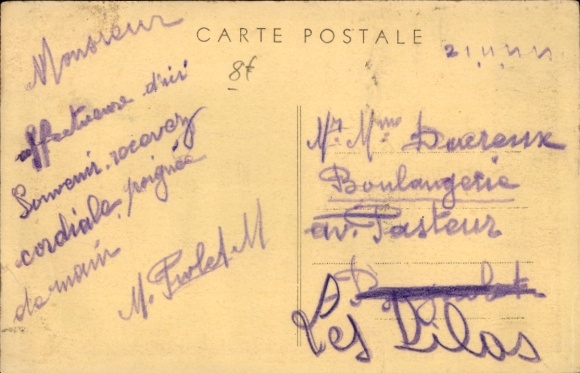 CARTE POSTALE
8f
Monsieur
affectueuse d'ici
Souvenir. recevez
cordiale poignée
de main
M.
Mr. Mme Ducreux
Boulangerie
av. Pasteur
Les Lilas